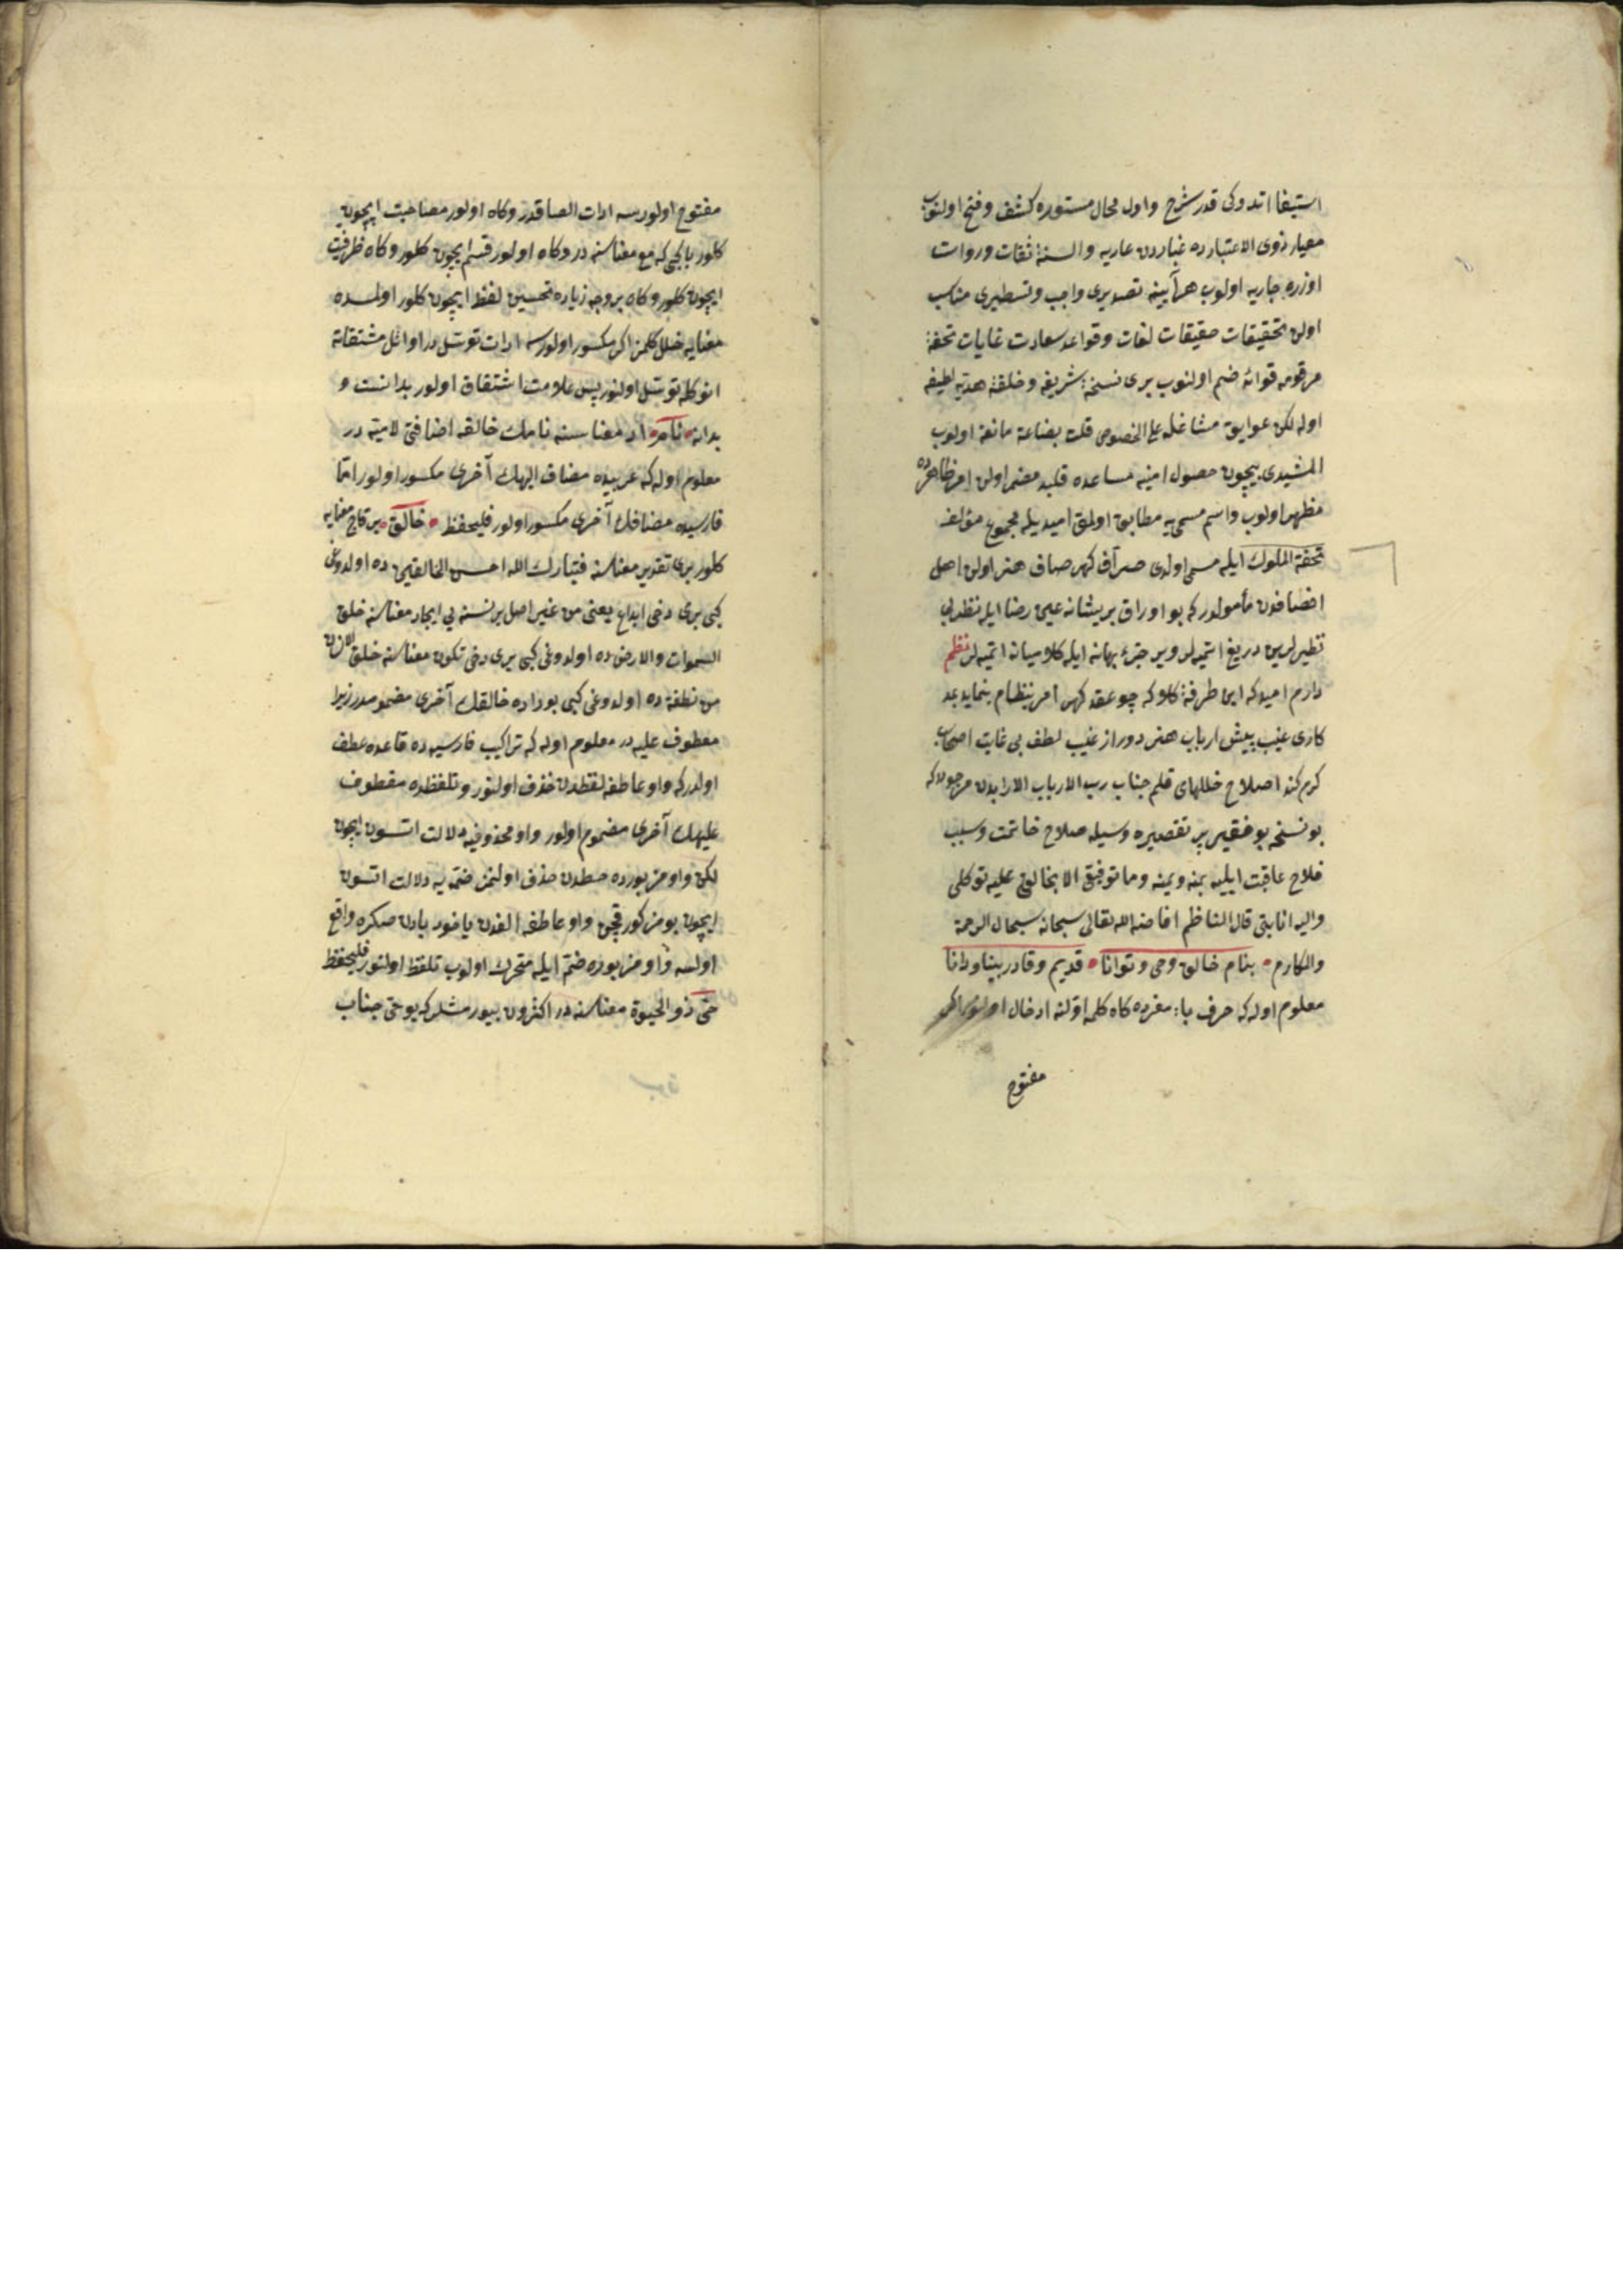 استیفا اتدوکی قدر شرح واول محال مستوره کشف وفتح اولنوب
معیار ذوی الاعتبارده غباردن عاریه والسنۀ ثقات وروات
اوزره جاریه اولوب هرآیینه تصدیری واجب وتسطیری مناسب
اولن تحقیقات حقیقات لغات وقواعد سعادت غایات تحفۀ
مرقومه قوانه ضم اولنوب بری نسخۀ شریفه وخلقۀ هدیۀ لطیفه
اوله لکن عوایق مشاغله علی الخصوص قلت بضاعة مانعه اولوب
المشیدی بیچون حصول امنیه مساعده قلبد مضمر اولن امر ظاهرده
مظهر اولوب واسم مسمی یه مطابق اولمق امیدیله مجموع مؤلفه
تحفة الملوك ایله مسمی اولدی صراف کهر صاف هنر اولن اهل
انصافدن مأمولدر که بو اوراق پریشانه عین رضا ایله نظر بی
نظیرلرین دریغ اتمیه لر ویر جزء بهانه ایله کلامیانه اتمیه لر نظم
دارم امید که این طرفۀ کلام که چو عقد کهر امر بنظام بنماید بعد
کاری عیب پیش ارباب هنر دور از غیب لطف بی غایت اصحاب
کرم کند اصلاح خللهای قلم جناب رب الارباب الارابدن مرجودر که
بو نسخه بو فقیر پر تقصیره وسیله صلاح خاتمت وسبب
فلاح عاقبت ایلیه بمنه ویمنه وما توفیقی الا بخالقی علیه توکلی
والیه انابتی قال الناظم افاضه الله تعالی سبحانه سبحال الرحمة
والمکارم • بنام خالق وحی وتوانا • قدیم وقادر بینا ودانا
معلوم اوله که حرف با مفرده کاه کلمه اولنه ادخال اولنور اکر
مفتوح
مفتوح اولورسه ادات الصاقدر وکاه اولور مصاحبت ایچون
کلور با کبی که مع معناسنه در وکاه اولور قسم ایچون کلور وکاه ظرفیت
ایچون کلور وکاه بر وجه زیاده تحسین لفظ ایچون کلور اولسده
معنایه خلل کلمز اکر مکسور اولورسه ادات توسل در اوائل مشتقاته
انوکله توسل اولنور پس علامت اشتقاق اولور بدانست و
بدانه • نام • اد معناسنه نامك خالقه اضافتی لامیه در
معلوم اوله که عربیده مضاف الیهك آخری مکسور اولور اما
فارسیده مضافك آخری مکسور اولور فلیحفظ • خالق • بر قاچ معنایه
کلور بری تقدیر معناسنه فتبارك الله احسن الخالقین ده اولدوغی
کبی بری دخی ابداع یعنی من غیر اصل بر نسنه یی ایجاد معناسنه خلق
السموات والارض ده اولدوغی کبی بری دخی تکون معناسنه خلق الانسان
من نطفة ده اولدوغی کبی بوراده خالقك آخری مضمومدر زیرا
معطوف علیه در معلوم اوله که تراکیب فارسیه ده قاعده عطف
اولدر که واو عاطفه لفظدن حذف اولنور وتلفظده معطوف
علیهك آخری مضموم اولور واو محذوفیه دلالت اتسون ایچون
لکن واو مزبورده خطدن حذف اولنمز ضمه یه دلالت اتسون
ایچون بو مزکور قچن واو عاطفه الفدن یاخود یادن صکره واقع
اولسه واو مزبوره ضم ایله متحرك اولوب تلفظ اولنور فلیحفظ
حی ذو الحیوة معناسنه در اکثرون بیورمشلر که بو حی جناب